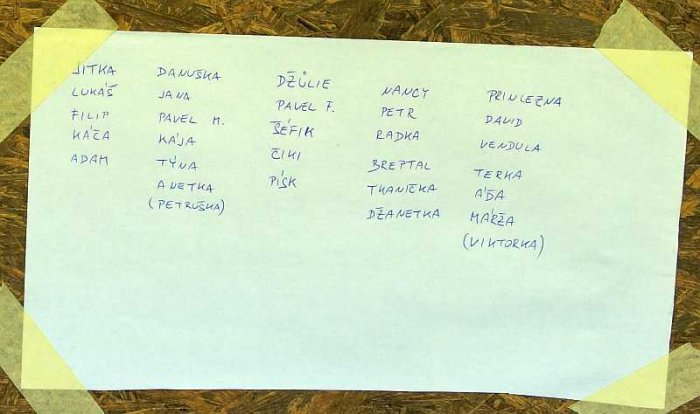 JITKA
LUKÁŠ
FILIP
KÁČA
ADAM
DANUŠKA
JANA
PAVEL M.
KÁJA
TÝNA
ANETKA
(PETRUŠKA)
DŽŮLIE
PAVEL F.
ŠÉFIK
ČIKI
PÍSK
NANCY
PETR
RADKA
BREPTAL
TKANIČKA
DŽANETKA
PRINCEZNA
DAVID
VENDULA
TERKA
ÁĎA
MÁRŽA
(VIKTORKA)